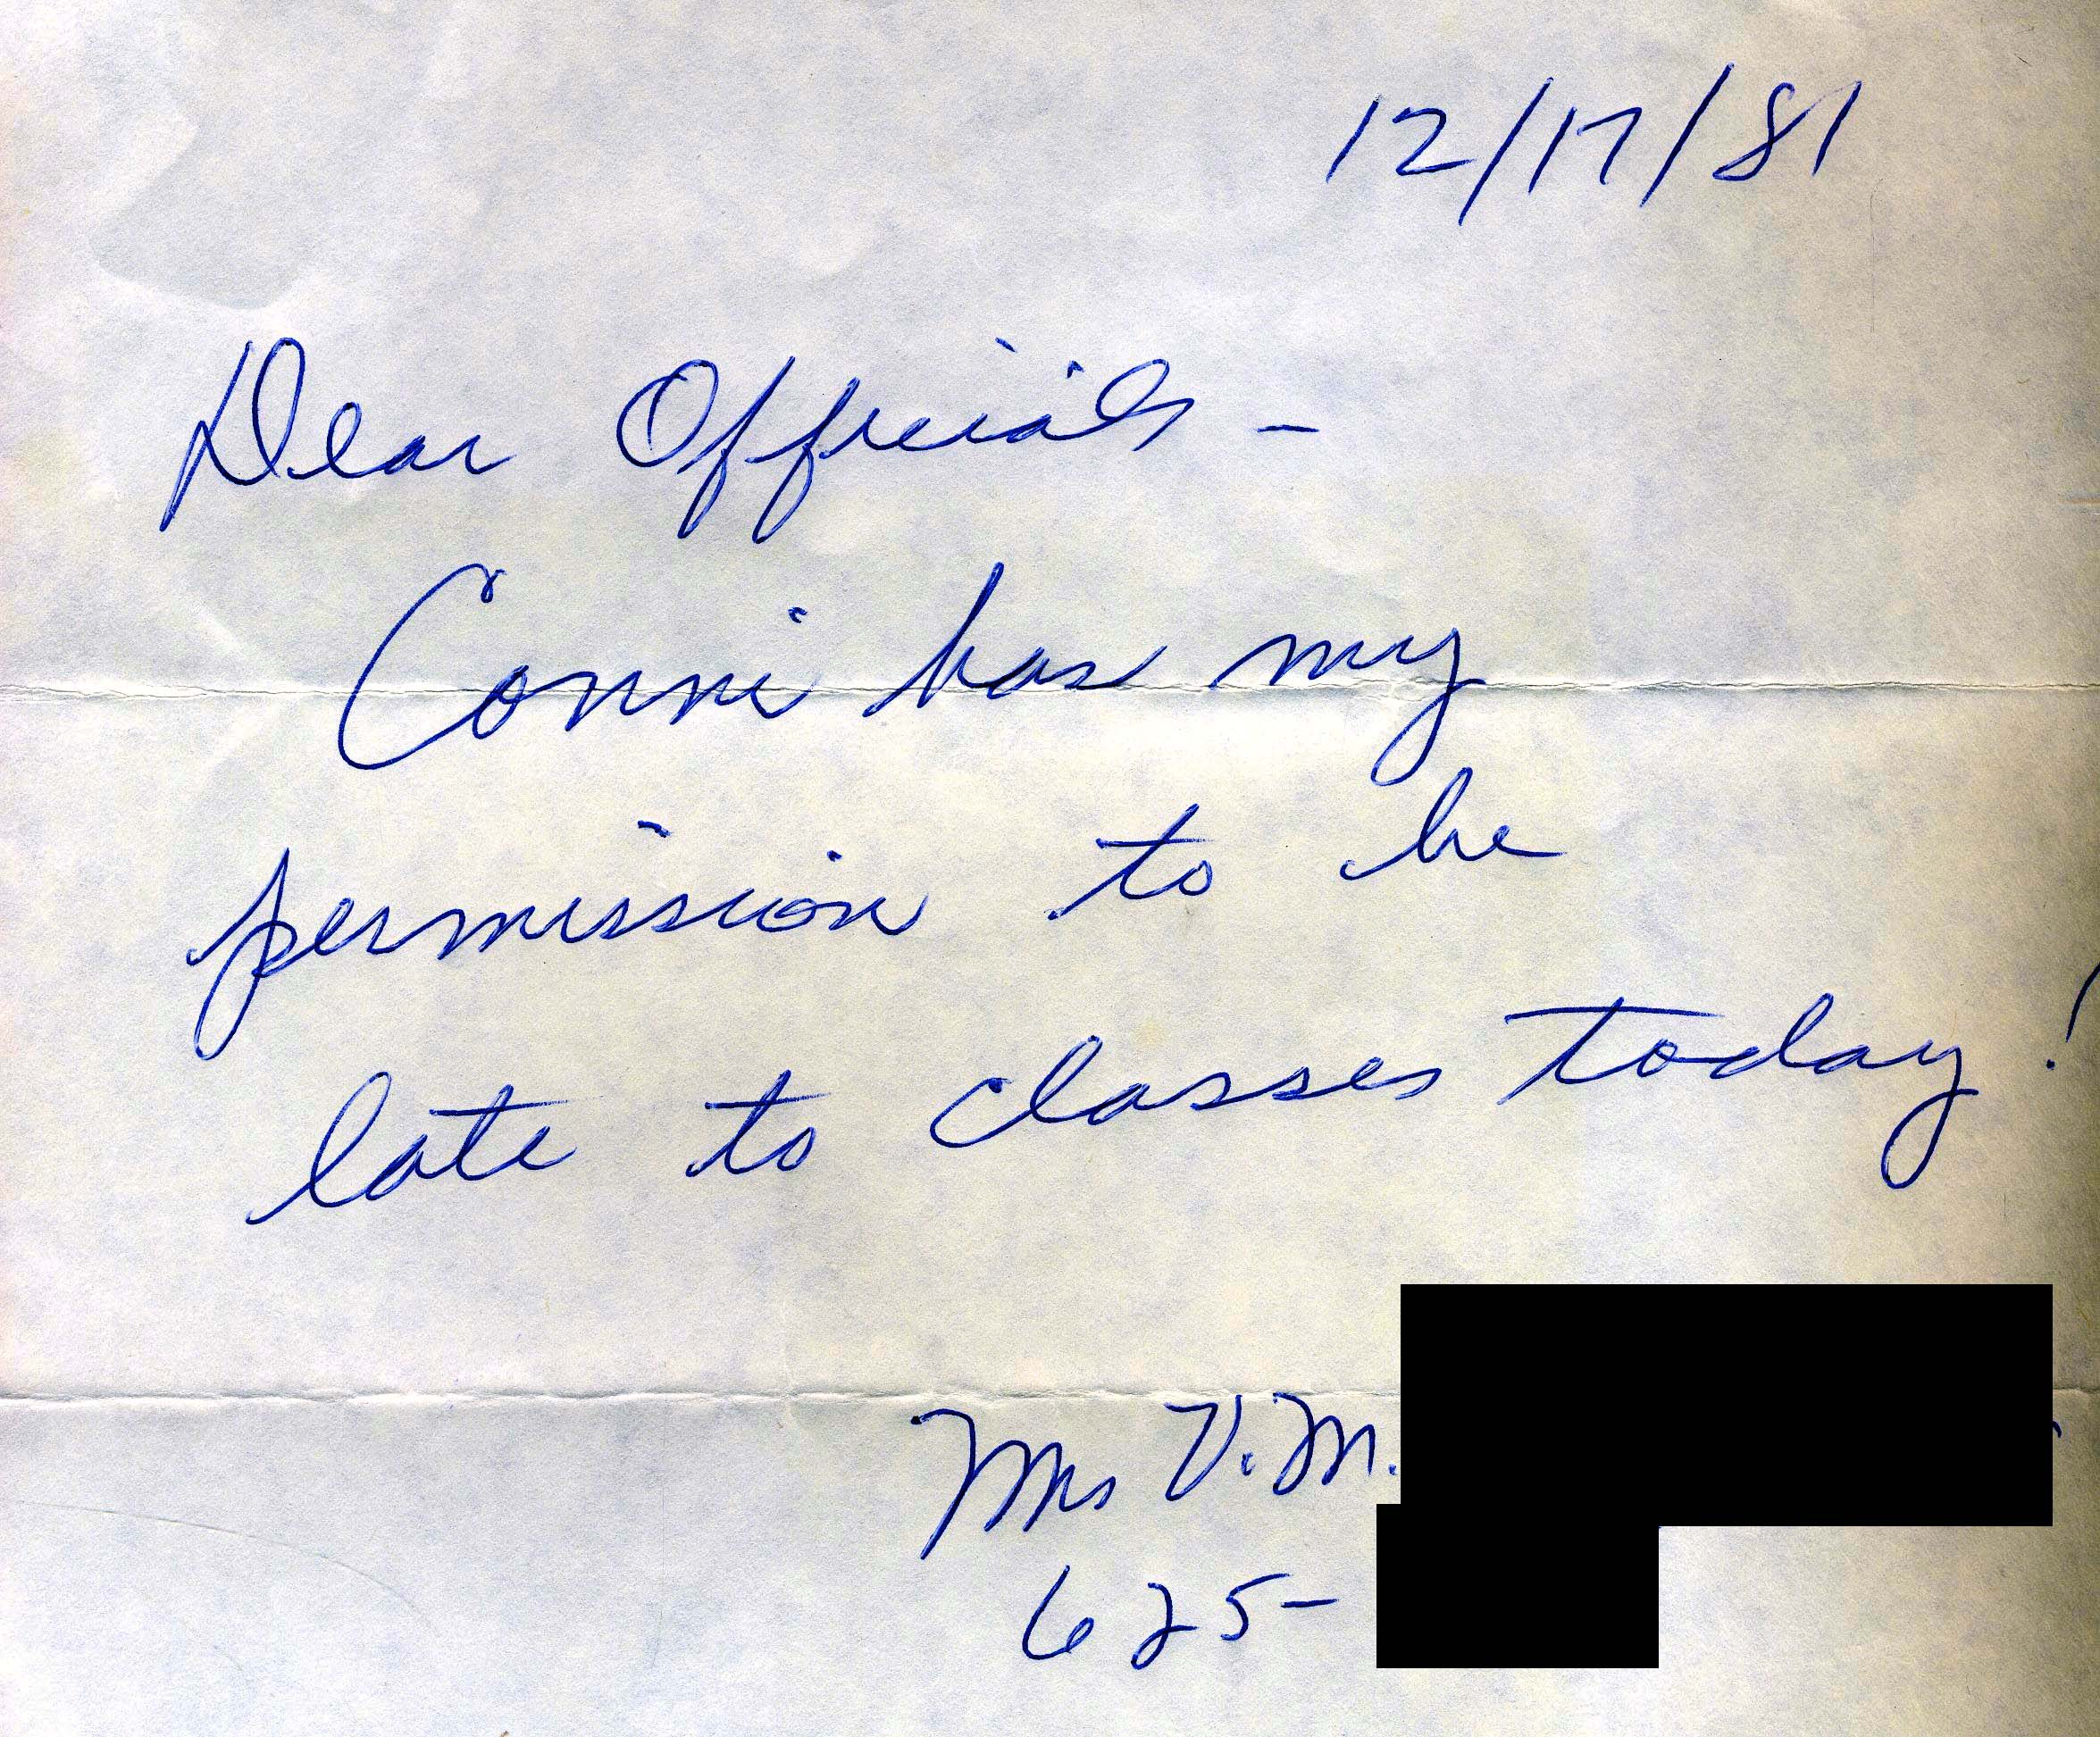 12/17/81
Dear Officials –
Conni has my
permission to be
late to classes today!
Mrs V. M.
625-